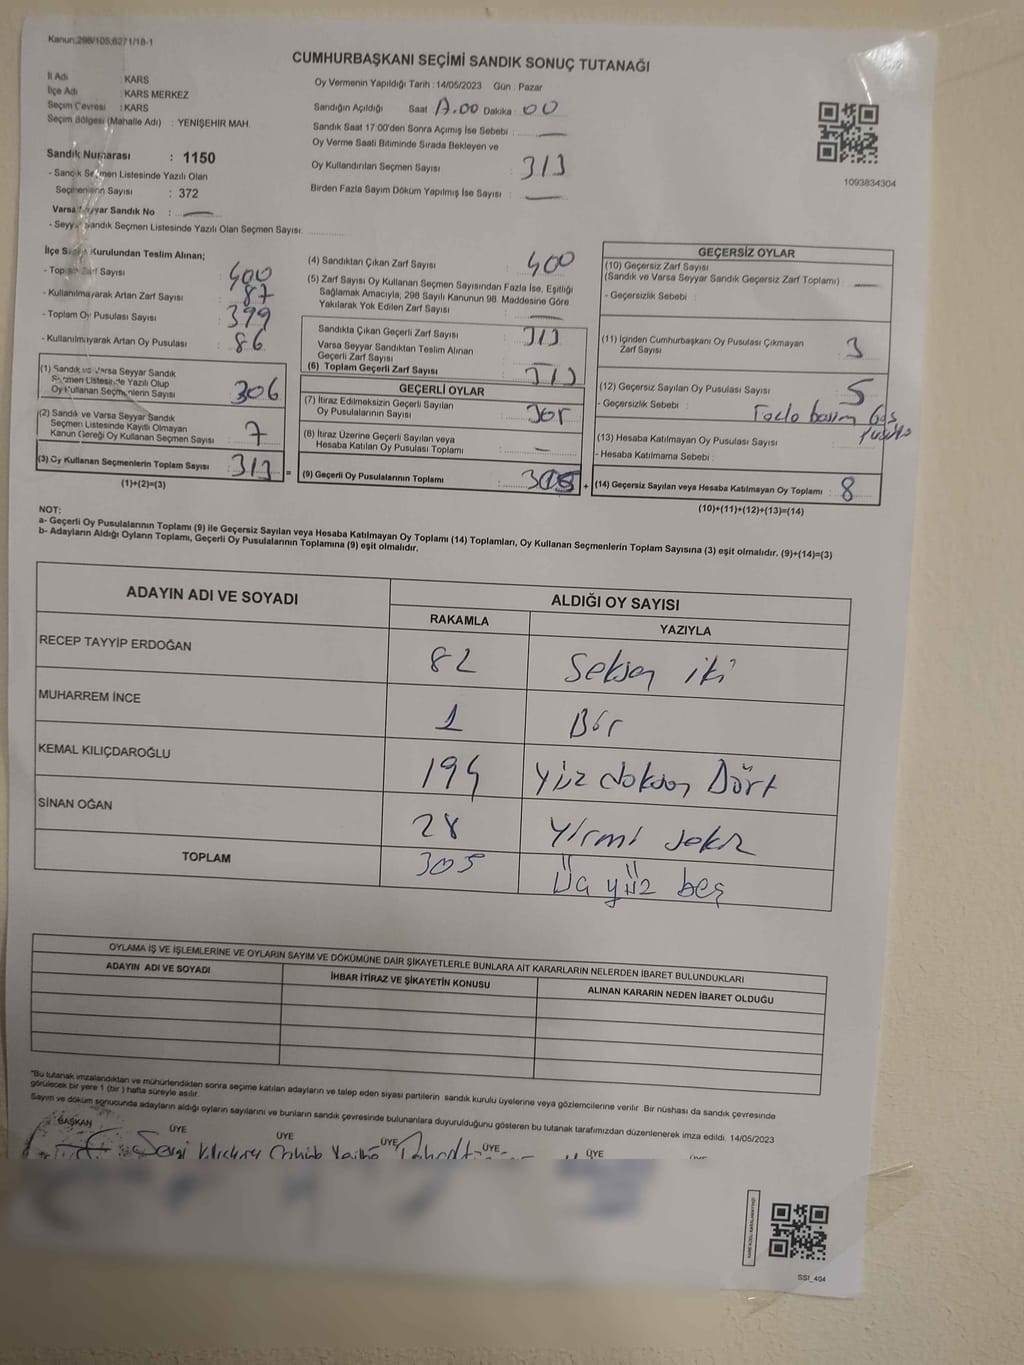 Kanun:298/105;6271/18-1
CUMHURBAŞKANI SEÇİMİ SANDIK SONUÇ TUTANAĞI
İl Adı : KARS
İlçe Adı : KARS MERKEZ
Seçim Çevresi : KARS
Seçim Bölgesi (Mahalle Adı) : YENİŞEHİR MAH.
Oy Vermenin Yapıldığı Tarih : 14/05/2023 Gün : Pazar
Sandığın Açıldığı Saat 00 Dakika : 00
Sandık Saat 17:00'den Sonra Açımış İse Sebebi : —
Oy Verme Saati Bitiminde Sırada Bekleyen ve
Oy Kullandırılan Seçmen Sayısı : 313
Birden Fazla Sayım Döküm Yapılmış İse Sayısı : —
1093834304
Sandık Numarası : 1150
- Sandık Seçmen Listesinde Yazılı Olan
Seçmenlerin Sayısı : 372
Varsa Seyyar Sandık No : —
- Seyyar Sandık Seçmen Listesinde Yazılı Olan Seçmen Sayısı:
İlçe Seçim Kurulundan Teslim Alınan;
- Toplam Zarf Sayısı : 400
- Kullanılmayarak Artan Zarf Sayısı : 87
- Toplam Oy Pusulası Sayısı : 399
- Kullanılmayarak Artan Oy Pusulası : 86
(1) Sandık ve Varsa Seyyar Sandık
Seçmen Listesinde Yazılı Olup
Oy Kullanan Seçmenlerin Sayısı : 306
(2) Sandık ve Varsa Seyyar Sandık
Seçmen Listesinde Kayıtlı Olmayan
Kanun Gereği Oy Kullanan Seçmen Sayısı : 7
(3) Oy Kullanan Seçmenlerin Toplam Sayısı : 313
(1)+(2)=(3)
(4) Sandıktan Çıkan Zarf Sayısı : 400
(5) Zarf Sayısı Oy Kullanan Seçmen Sayısından Fazla İse, Eşitliği
Sağlamak Amacıyla, 298 Sayılı Kanunun 98. Maddesine Göre
Yakılarak Yok Edilen Zarf Sayısı : —
Sandıkta Çıkan Geçerli Zarf Sayısı : 313
Varsa Seyyar Sandıktan Teslim Alınan
Geçerli Zarf Sayısı :
(6) Toplam Geçerli Zarf Sayısı : 313
GEÇERLİ OYLAR
(7) İtiraz Edilmeksizin Geçerli Sayılan
Oy Pusulalarının Sayısı : 305
(8) İtiraz Üzerine Geçerli Sayılan veya
Hesaba Katılan Oy Pusulası Toplamı : —
(9) Geçerli Oy Pusulalarının Toplamı : 305
GEÇERSİZ OYLAR
(10) Geçersiz Zarf Sayısı
(Sandık ve Varsa Seyyar Sandık Geçersiz Zarf Toplamı) : —
- Geçersizlik Sebebi :
(11) İçinden Cumhurbaşkanı Oy Pusulası Çıkmayan
Zarf Sayısı : 3
(12) Geçersiz Sayılan Oy Pusulası Sayısı : 5
- Geçersizlik Sebebi :
(13) Hesaba Katılmayan Oy Pusulası Sayısı :
- Hesaba Katılmama Sebebi :
(14) Geçersiz Sayılan veya Hesaba Katılmayan Oy Toplamı : 8
(10)+(11)+(12)+(13)=(14)
NOT:
a- Geçerli Oy Pusulalarının Toplamı (9) ile Geçersiz Sayılan veya Hesaba Katılmayan Oy Toplamı (14) Toplamları, Oy Kullanan Seçmenlerin Toplam Sayısına (3) eşit olmalıdır. (9)+(14)=(3)
b- Adayların Aldığı Oyların Toplamı, Geçerli Oy Pusulalarının Toplamına (9) eşit olmalıdır.
ADAYIN ADI VE SOYADI ALDIĞI OY SAYISI
RAKAMLA YAZIYLA
RECEP TAYYİP ERDOĞAN 82 Seksen iki
MUHARREM İNCE 1 Bir
KEMAL KILIÇDAROĞLU 194 Yüz doksan Dört
SİNAN OĞAN 28 Yirmi sekiz
TOPLAM 305 Üç yüz beş
OYLAMA İŞ VE İŞLEMLERİNE VE OYLARIN SAYIM VE DÖKÜMÜNE DAİR ŞİKAYETLERLE BUNLARA AİT KARARLARIN NELERDEN İBARET BULUNDUKLARI
ADAYIN ADI VE SOYADI İHBAR İTİRAZ VE ŞİKAYETİN KONUSU ALINAN KARARIN NEDEN İBARET OLDUĞU
*Bu tutanak imzalandıktan ve mühürlendikten sonra seçime katılan adayların ve talep eden siyasi partilerin sandık kurulu üyelerine veya gözlemcilerine verilir. Bir nüshası da sandık çevresinde
görülecek bir yere 1 (bir) hafta süreyle asılır.
Sayım ve döküm sonucunda adayların aldığı oyların sayılarını ve bunların sandık çevresinde bulunanlara duyurulduğunu gösteren bu tutanak tarafımızdan düzenlenerek imza edildi. 14/05/2023
BAŞKAN ÜYE ÜYE ÜYE ÜYE ÜYE
SSI_404